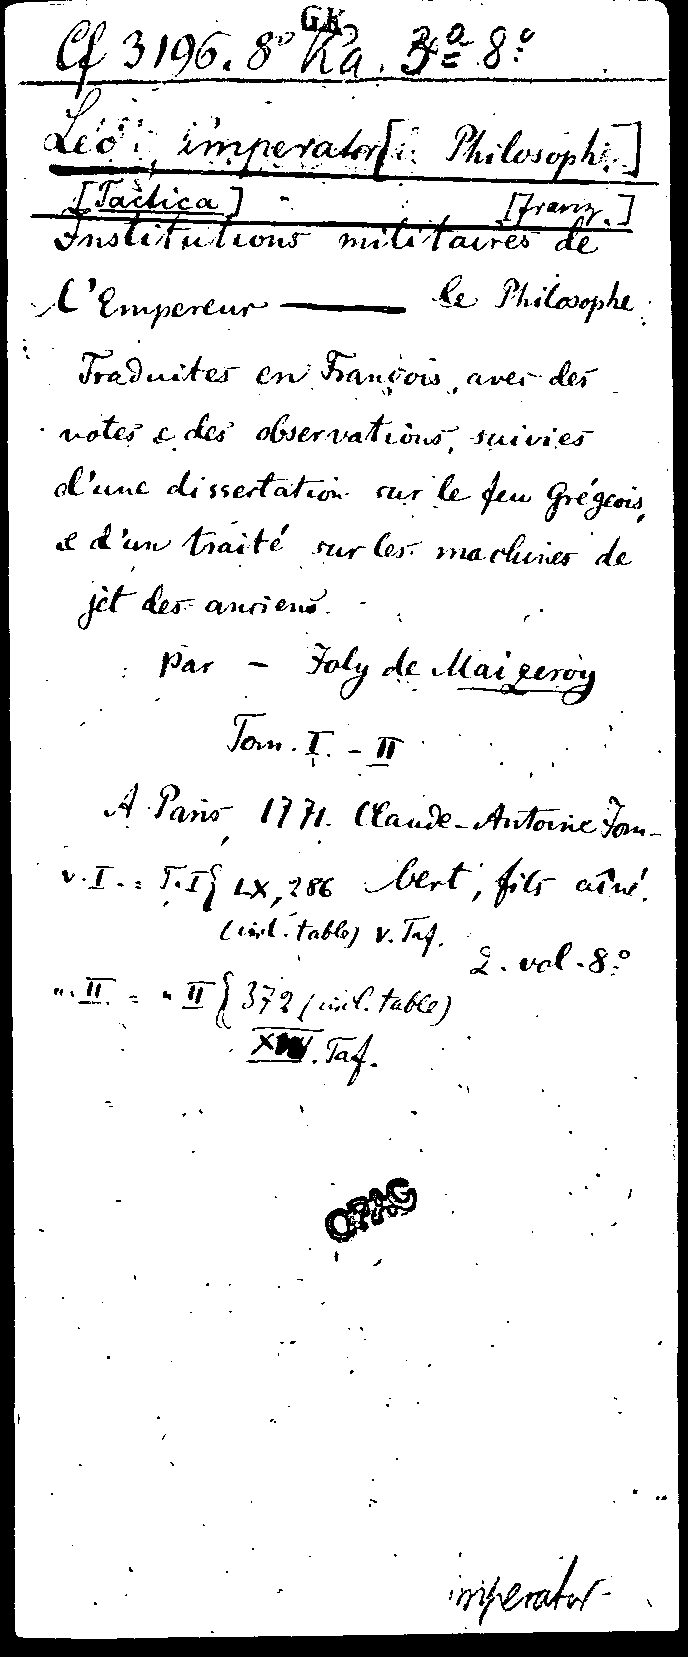 GK
Cf 3196. 8° Ka. 3a 8°
Leo, imperator [Philosoph.]
[Tactica] [Franz.]
Institutions militaires de
l'Empereur —— le Philosophe
Traduites en François, avec des
notes & des observations, suivies
d'une dissertation sur le feu Grégeois,
& d'un traité sur les machines de
jet des anciens.
par — Joly de Maizeroy
Tom. I. - II
A Paris, 1771. Claude-Antoine Jom-
bert, fils aîné.
v. I. = T. I { LX, 286
(incl. table) v. Taf.
2. vol. 8°
". II. = " II { 372 (incl. table)
Taf.
OPAC
imperator